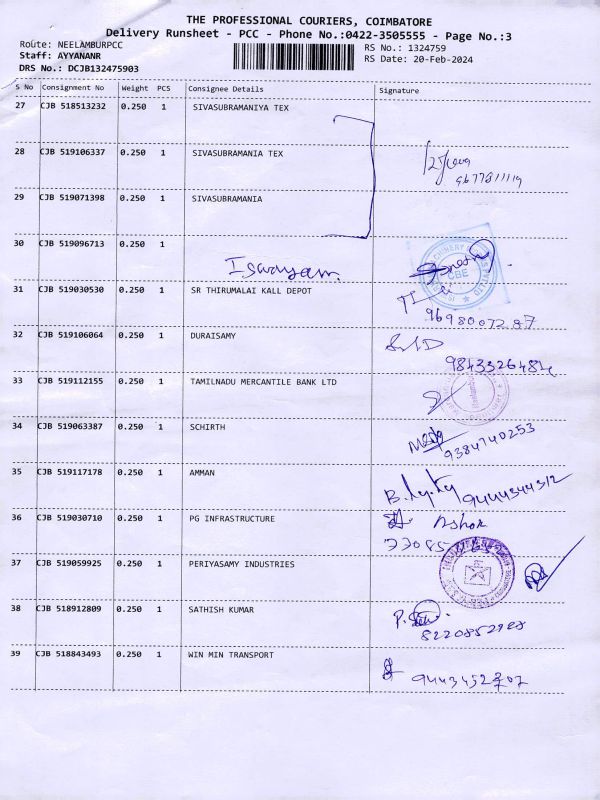 THE PROFESSIONAL COURIERS, COIMBATORE
Delivery Runsheet - PCC - Phone No.:0422-3505555 - Page No.:3
Route: NEELAMBURPCC
RS No.: 1324759
Staff: AYYANANR
RS Date: 20-Feb-2024
DRS No.: DCJB132475903
S No Consignment No Weight PCS Consignee Details Signature
27 CJB 518513232 0.250 1 SIVASUBRAMANIYA TEX
28 CJB 519106337 0.250 1 SIVASUBRAMANIA TEX
9677811119
29 CJB 519071398 0.250 1 SIVASUBRAMANIA
30 CJB 519096713 0.250 1
CBE
31 CJB 519030530 0.250 1 SR THIRUMALAI KALL DEPOT
9698007287
32 CJB 519106064 0.250 1 DURAISAMY
9843326484
33 CJB 519112155 0.250 1 TAMILNADU MERCANTILE BANK LTD
34 CJB 519063387 0.250 1 SCHIRTH
9384740253
35 CJB 519117178 0.250 1 AMMAN
9444344312
36 CJB 519030710 0.250 1 PG INFRASTRUCTURE
Ashok
37 CJB 519059925 0.250 1 PERIYASAMY INDUSTRIES
38 CJB 518912809 0.250 1 SATHISH KUMAR
8220852928
39 CJB 518843493 0.250 1 WIN MIN TRANSPORT